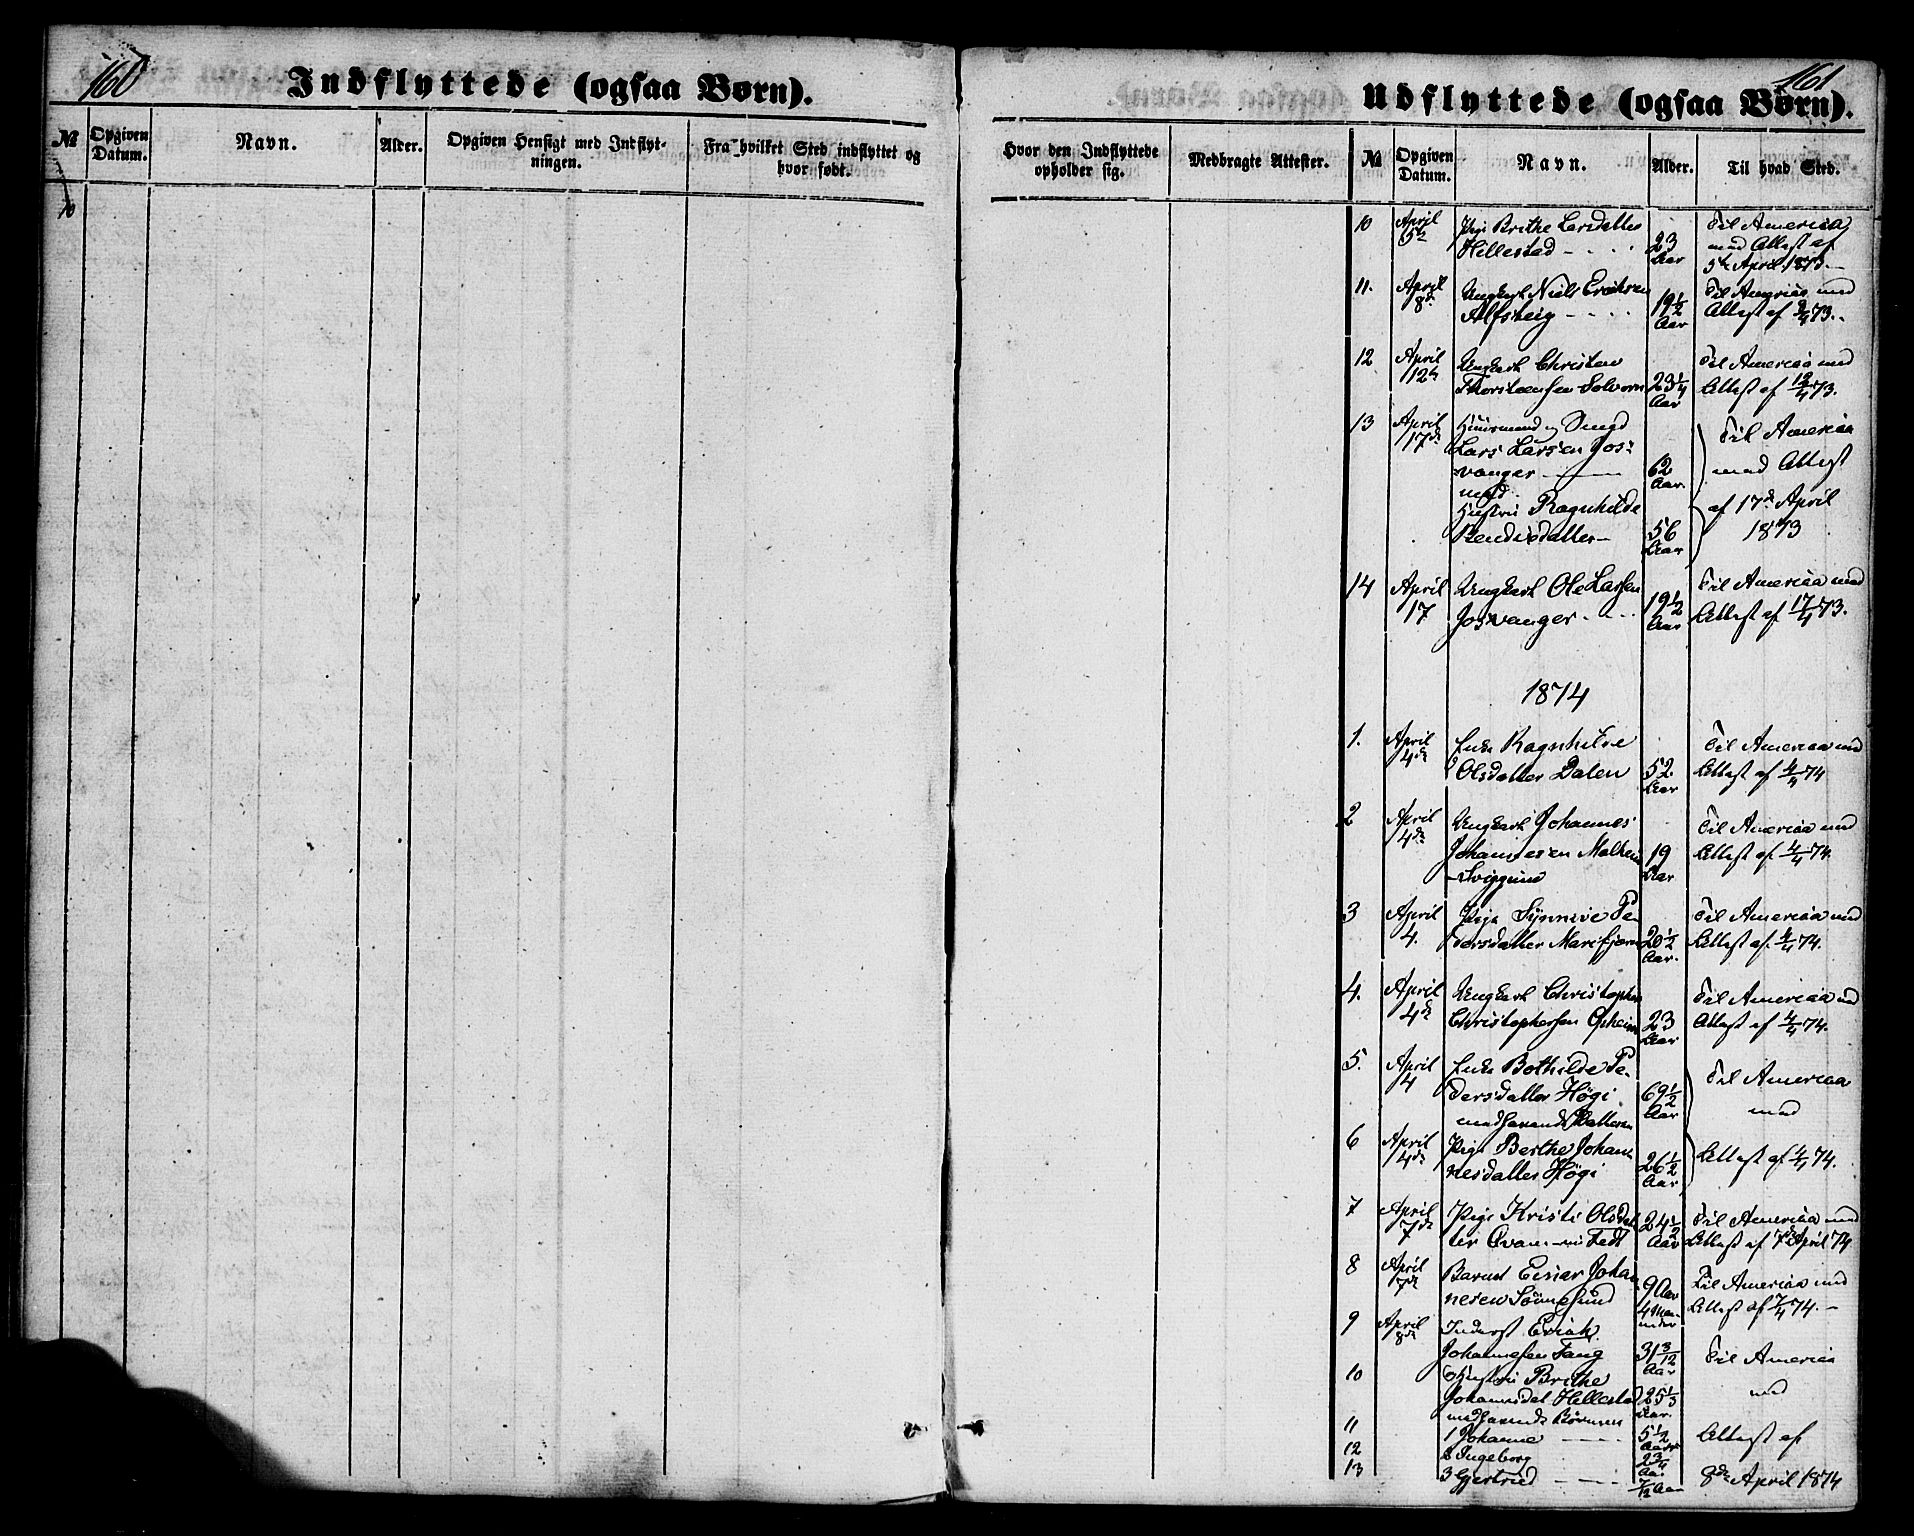 160
Indflyttede (ogsaa Børn).
№
Opgiven Datum.
Navn.
Alder.
Opgiven Hensigt med Indflyt-
ningen.
Fra hvilket Sted indflyttet og
hvor født.
161
Udflyttede (ogsaa Børn).
Hvor den Indflyttede
opholder sig.
Medbragte Attester.
№
Opgiven Datum.
Navn.
Alder.
Til hvad Sted.
10 April 5te Pige Brithe Larsdatter
Hellestad 23 Aar
Til America
med Attest af
5te April 1873.
11. April 8de Ungkarl Niels Eriksen
Alfsteig 19½ Aar
Til America med
Attest af 8/4 73.
12 April 12te Ungkarl Christen
Thorstensen Solvorn 23¼ Aar
Til America med
Attest af 12/4 73.
13 April 17de Huusmand og Smed
Lars Larsen Jos-
vanger 62 Aar
med
Hustru Ragnhilde
Bendixdatter 56 Aar
Til America
med Attest
af 17de April
1873
14 April 17 Ungkarl Ole Larsen
Josvanger 19½ Aar
Til America med
Attest af 17/4 73.
1874
1. April 4de Enke Ragnhilde
Olsdatter Dalen 52 Aar
Til America med
Attest af 4/4 74
2 April 4de Ungkarl Johannes
Johannesen Molhein
19 Aar
Til America med
Attest af 4/4 74.
3 April 4. Pige Synnive Pe
dersdatter Marifjæren 20½ Aar.
Til America med
Attest af 4/4 74.
4. April 4de Ungkarl Christopher
Christophersen Opheim 23 Aar
Til America med
Attest af 4/4 74.
5. April 4 Enke Bothilde Pe
dersdatter Høgi 69½ Aar
medhavende Datteren
Til America
med
6 April 4de Pige Berthe Johan
nesdatter Høgi 26½ Aar
Attest af 4/4 74.
7 April 7de Pige Kristi Olsdat
ter Qvam Fedt 24½ Aar
Til America med
Attest af 7de April 74
8 April 7de Barnet Einar Johan
nesen Sørnesund 9 Aar
4 Maaneder
Til America med
Attest af 7/4 74.
9 April 8de Inderst Erick
Johannesen Fang 31 3/12 Aar
Til America
10 Hustru Brithe
Johannesdat Hellestad 25⅓ Aar.
medhavende Børnene
med
11 1 Johanne 5½ Aar
Attest af
12 2 Ingeborg 2¾ Aar
13 3 Gjertrud 7/12 Aar
8de April 1874